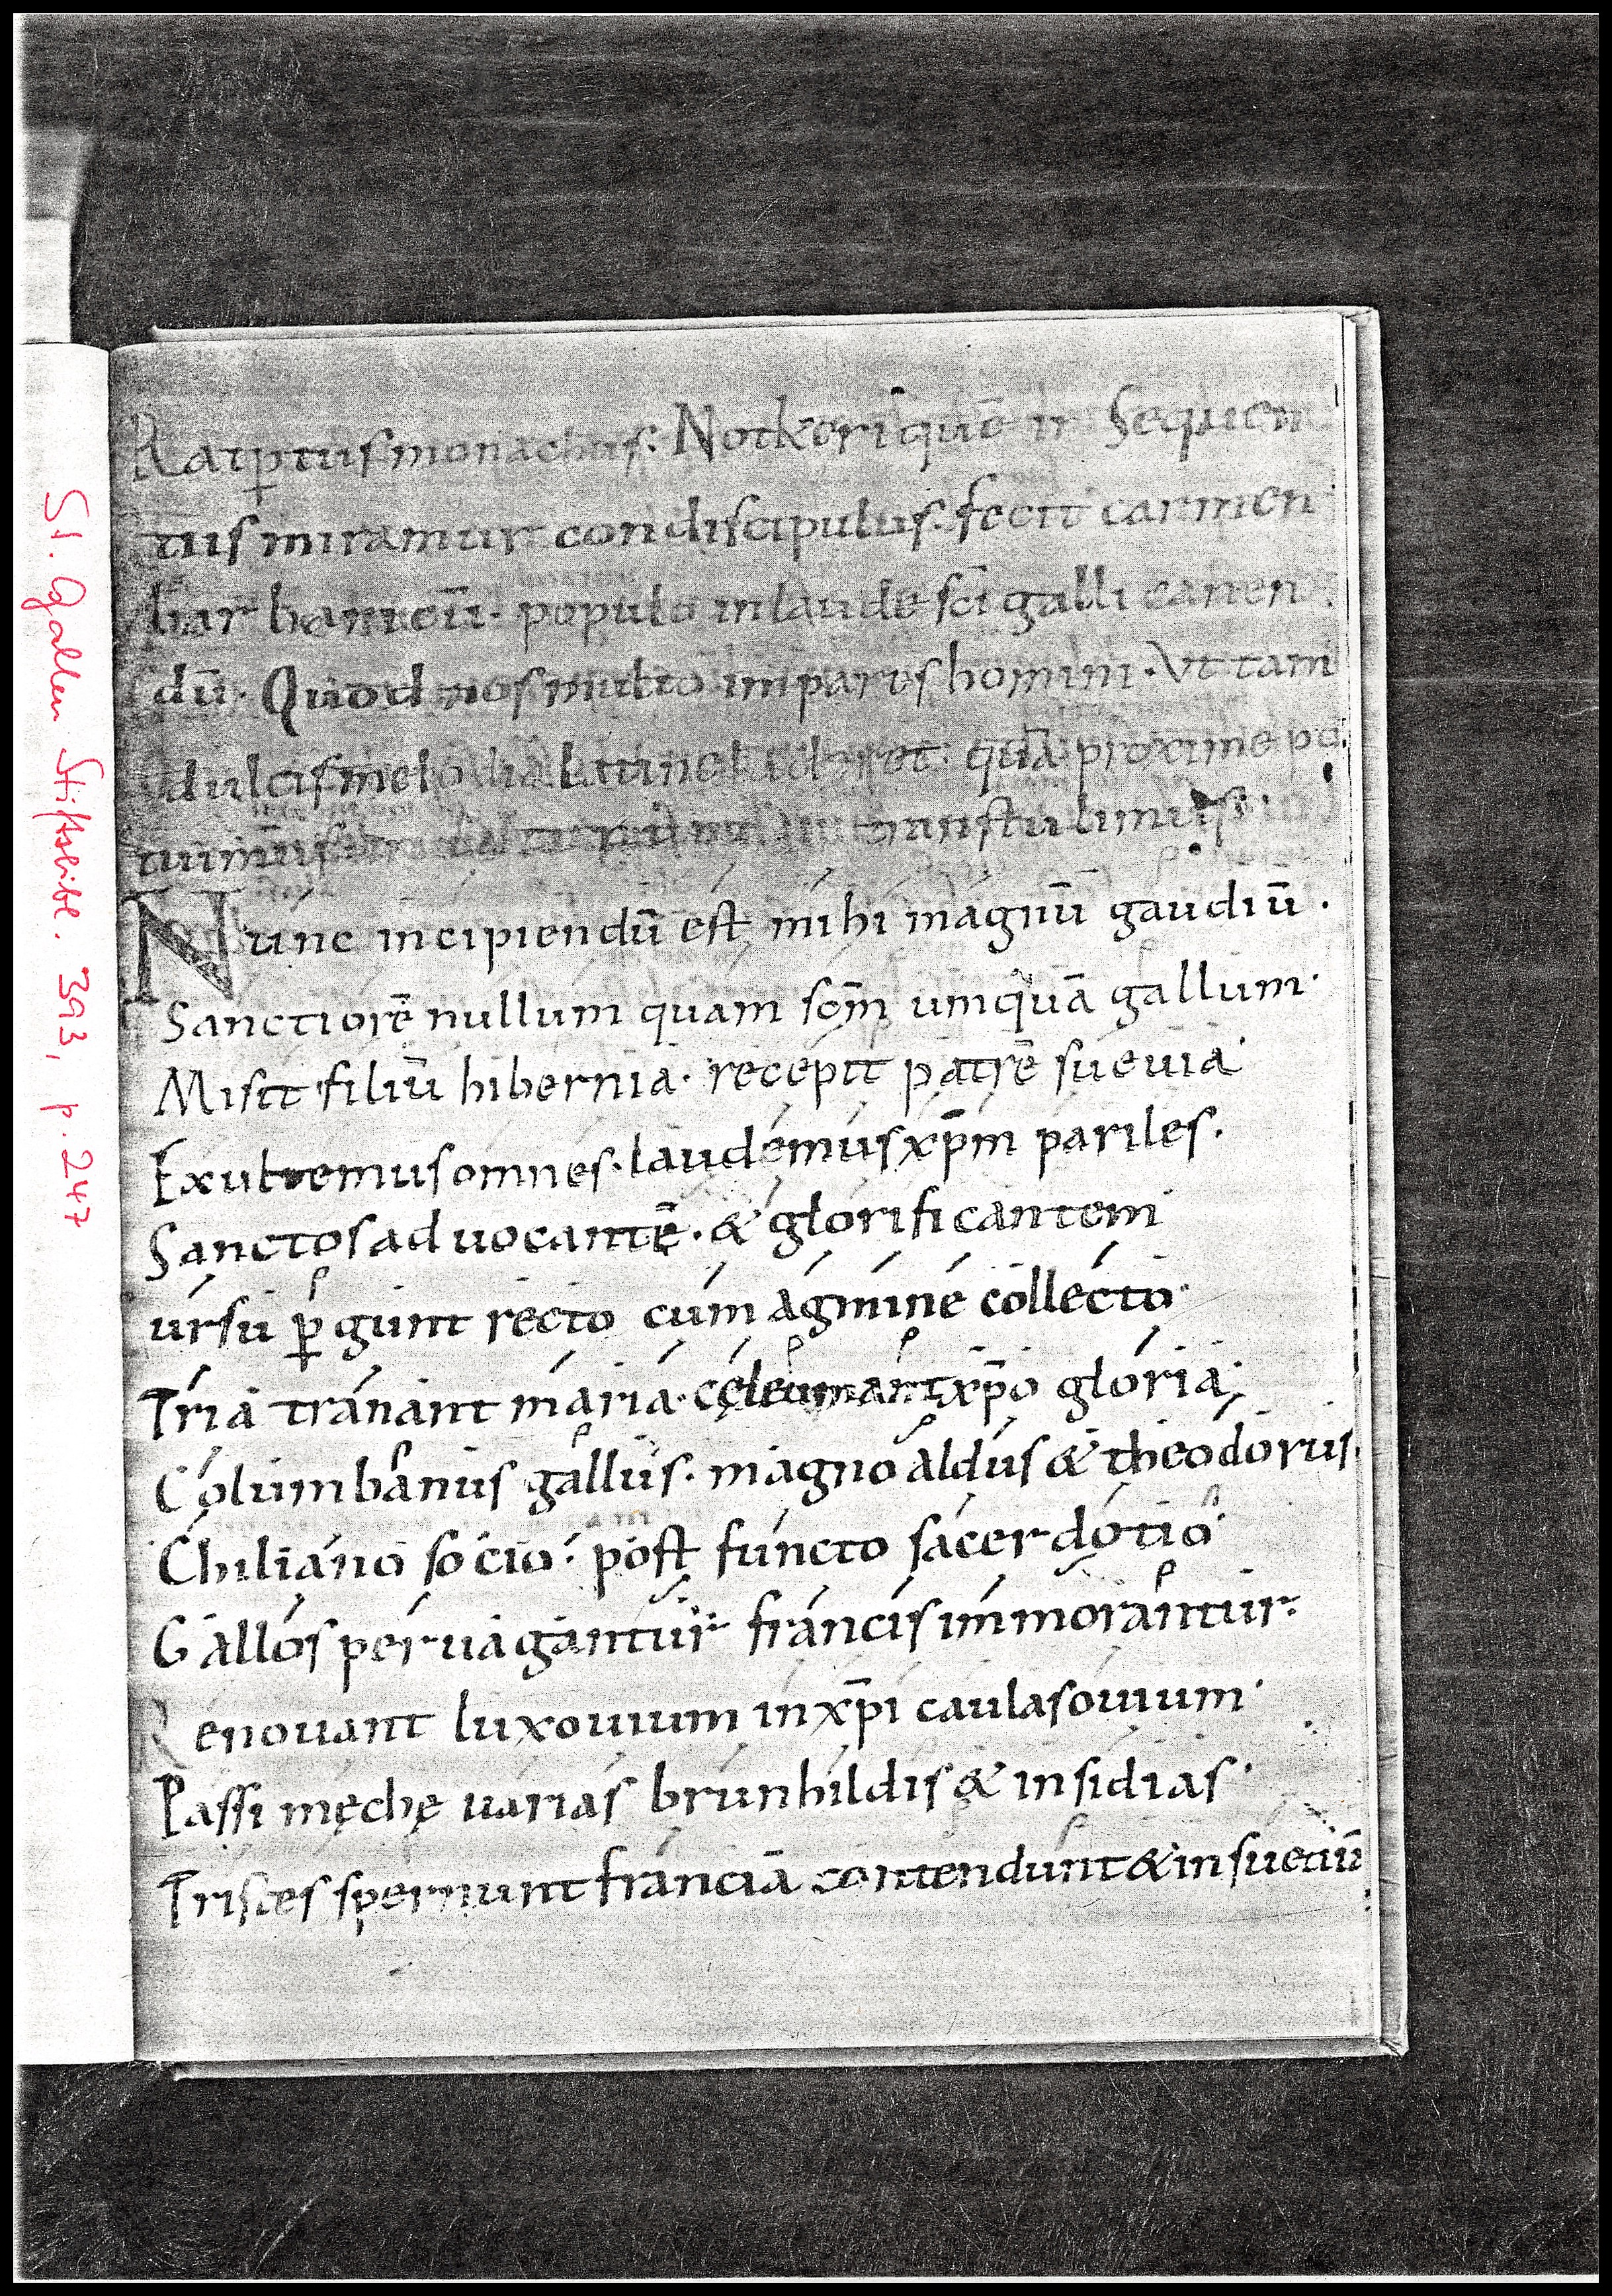 St. Gallen Stiftsbibl. 393, p. 247
Ratptus monachus. Notkeri quē in Sequen
tiis miramur condiscipulus. fecit carmen
barbaricū. populo in laude sc̄i galli canen
dū. Quod nos multo impares homini. Ut tam
dulcis melodia Latine luderet. quā proxime po
tuimus transtulimus.
Nunc incipiendū est mihi magnū gaudiū.
Sanctiorē nullum quam sc̄m umquā gallum.
Misit filiū hibernia. recepit patrē sueuia.
Exultemus omnes. laudemus xp̄m pariles.
Sanctos aduocantē. & glorificantem
ursu ꝑgunt recto cum agmine collecto.
Tria tranant maria. cęleumant xp̄o gloria;
Columbanus gallus. magnoaldus & theodorus.
Chiliano socio. post functo sacerdotio.
Gallos peruagantur francis immorantur.
Renouant luxouium in xp̄i caulas ouium.
Passi męchę uarias brunhildis & insidias.
Tristes spernunt franciā contendunt & in sueuiā